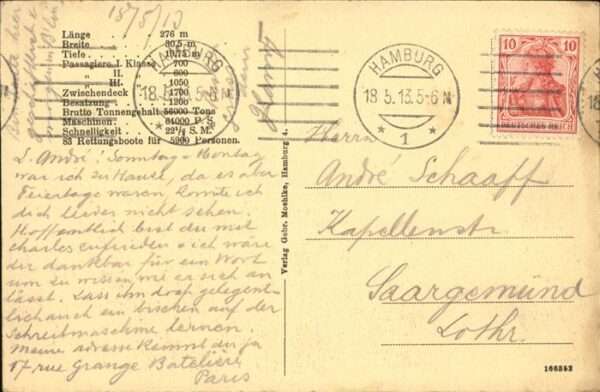 18/5/13
Länge . . . 276 m
Breite . . . 30,5 m
Tiefe . . . 19,75 m
Passagiere I. Klasse . 700
„ II. . 600
„ III. . 1050
Zwischendeck . 1700
Besatzung . . 1200
Brutto Tonnengehalt 56000 Tons
Maschinen . 64000 P. S.
Schnelligkeit . 22½ S. M.
83 Rettungsboote für 5900 Personen.
L. André! Sonntag + Montag
war ich zu Hause, da es aber
Feiertage waren konnte ich
dich leider nicht sehen.
Hoffentlich bist du mit
Charles zufrieden + ich wäre
dir dankbar für ein Wort
um zu wissen wie er sich an
lässt. Lass ihn doch gelegent-
lich auch ein bischen auf der
Schreibmaschine lernen.
Meine adresse kennst du ja
17 rue Grange Batelière
Paris
Verlag Gebr. Moehlke, Hamburg 4.
HAMBURG
18.5.13.5-6 N
* 1 *
HAMBURG
18.5.13.5-6 N
* 1 *
10 10
DEUTSCHES REICH
Herrn
André Schaaff
Kapellenstr.
Saargemünd
Lothr.
166353